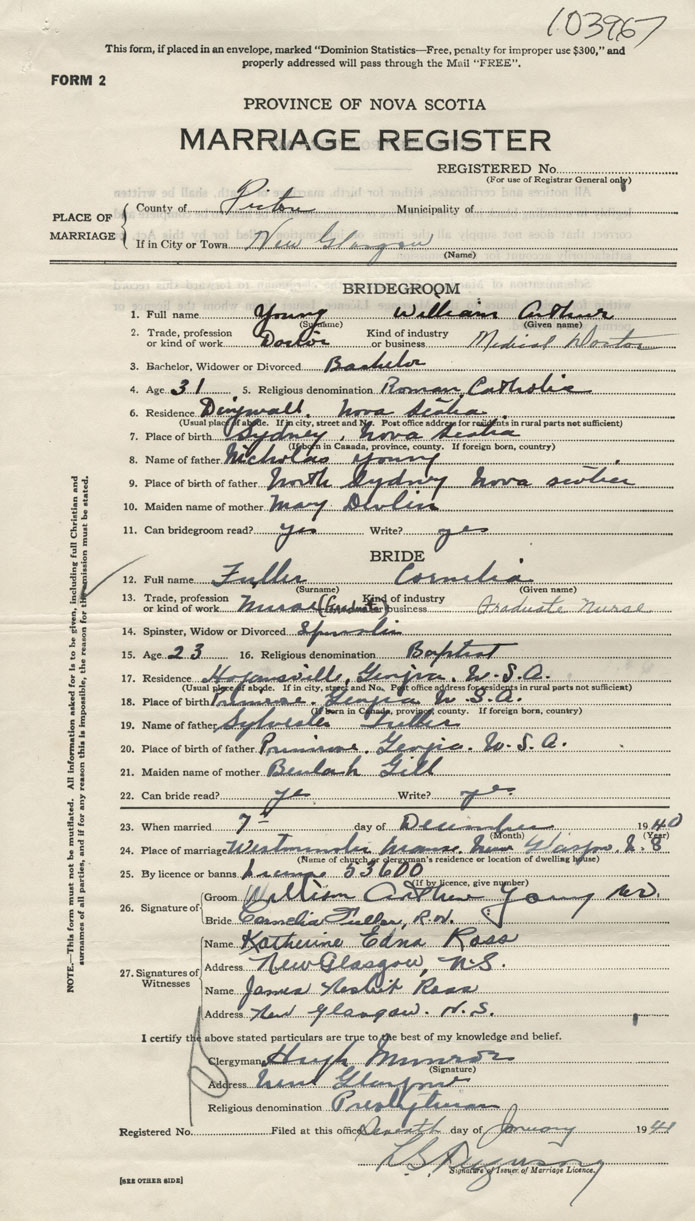 103967
This form, if placed in an envelope, marked "Dominion Statistics—Free, penalty for improper use $300," and
properly addressed will pass through the Mail "FREE".
FORM 2
PROVINCE OF NOVA SCOTIA
MARRIAGE REGISTER
REGISTERED No.
(For use of Registrar General only)
PLACE OF MARRIAGE
County of Pictou Municipality of
If in City or Town New Glasgow
(Name)
BRIDEGROOM
1. Full name Young William Arthur
(Surname) (Given name)
2. Trade, profession or kind of work Doctor Kind of industry or business Medical Doctor
3. Bachelor, Widower or Divorced Bachelor
4. Age 31 5. Religious denomination Roman Catholic
6. Residence Dingwall, Nova Scotia
(Usual place of abode. If in city, street and No. Post office address for residents in rural parts not sufficient)
7. Place of birth Sydney, Nova Scotia
(If born in Canada, province, county. If foreign born, country)
8. Name of father Nicholas Young
9. Place of birth of father North Sydney Nova Scotia
10. Maiden name of mother Mary Devlin
11. Can bridegroom read? yes Write? yes
BRIDE
12. Full name Fuller Cornelia
(Surname) (Given name)
13. Trade, profession or kind of work Nurse (Graduate) Kind of industry or business Graduate Nurse
14. Spinster, Widow or Divorced
15. Age 23 16. Religious denomination Baptist
17. Residence Hogansville, Georgia, U.S.A.
(Usual place of abode. If in city, street and No. Post office address for residents in rural parts not sufficient)
18. Place of birth Primrose, Georgia U.S.A.
(If born in Canada, province, county. If foreign born, country)
19. Name of father Sylvester Fuller
20. Place of birth of father Primrose, Georgia. U.S.A.
21. Maiden name of mother Beulah Gill
22. Can bride read? yes Write? yes
23. When married 7th day of December 1940
(Month) (Year)
24. Place of marriage Westminster Manse, New Glasgow, N.S.
(Name of church or clergyman's residence or location of dwelling house)
25. By licence or banns License 53600
(If by licence, give number)
26. Signature of
Groom William Arthur Young MD.
Bride Cornelia Fuller, R.N.
27. Signatures of Witnesses
Name Katherine Edna Ross
Address New Glasgow, N.S.
Name James Nesbit Ross
Address New Glasgow. N.S.
I certify the above stated particulars are true to the best of my knowledge and belief.
Clergyman Hugh Munroe
(Signature)
Address New Glasgow
Religious denomination Presbyterian
Registered No. Filed at this office Seventh day of January 1941
Ferguson
Signature of Issuer of Marriage Licence.
[SEE OTHER SIDE]
NOTE.—This form must not be mutilated. All information asked for is to be given, including full Christian and
surnames of all parties, and if for any reason this is impossible, the reason for the omission must be stated.